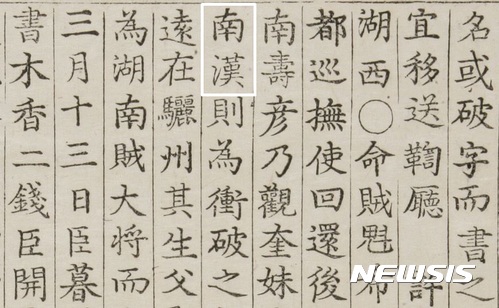 名或破字而書之
宜移送鞫廳 許
湖西○命賊魁
都巡撫使回還後
南壽彦乃觀奎妹
南漢則為衝破之
遠在驪州其生父
為湖南賊大將而
三月十三日臣暮
書木香二錢臣開
NEWSIS